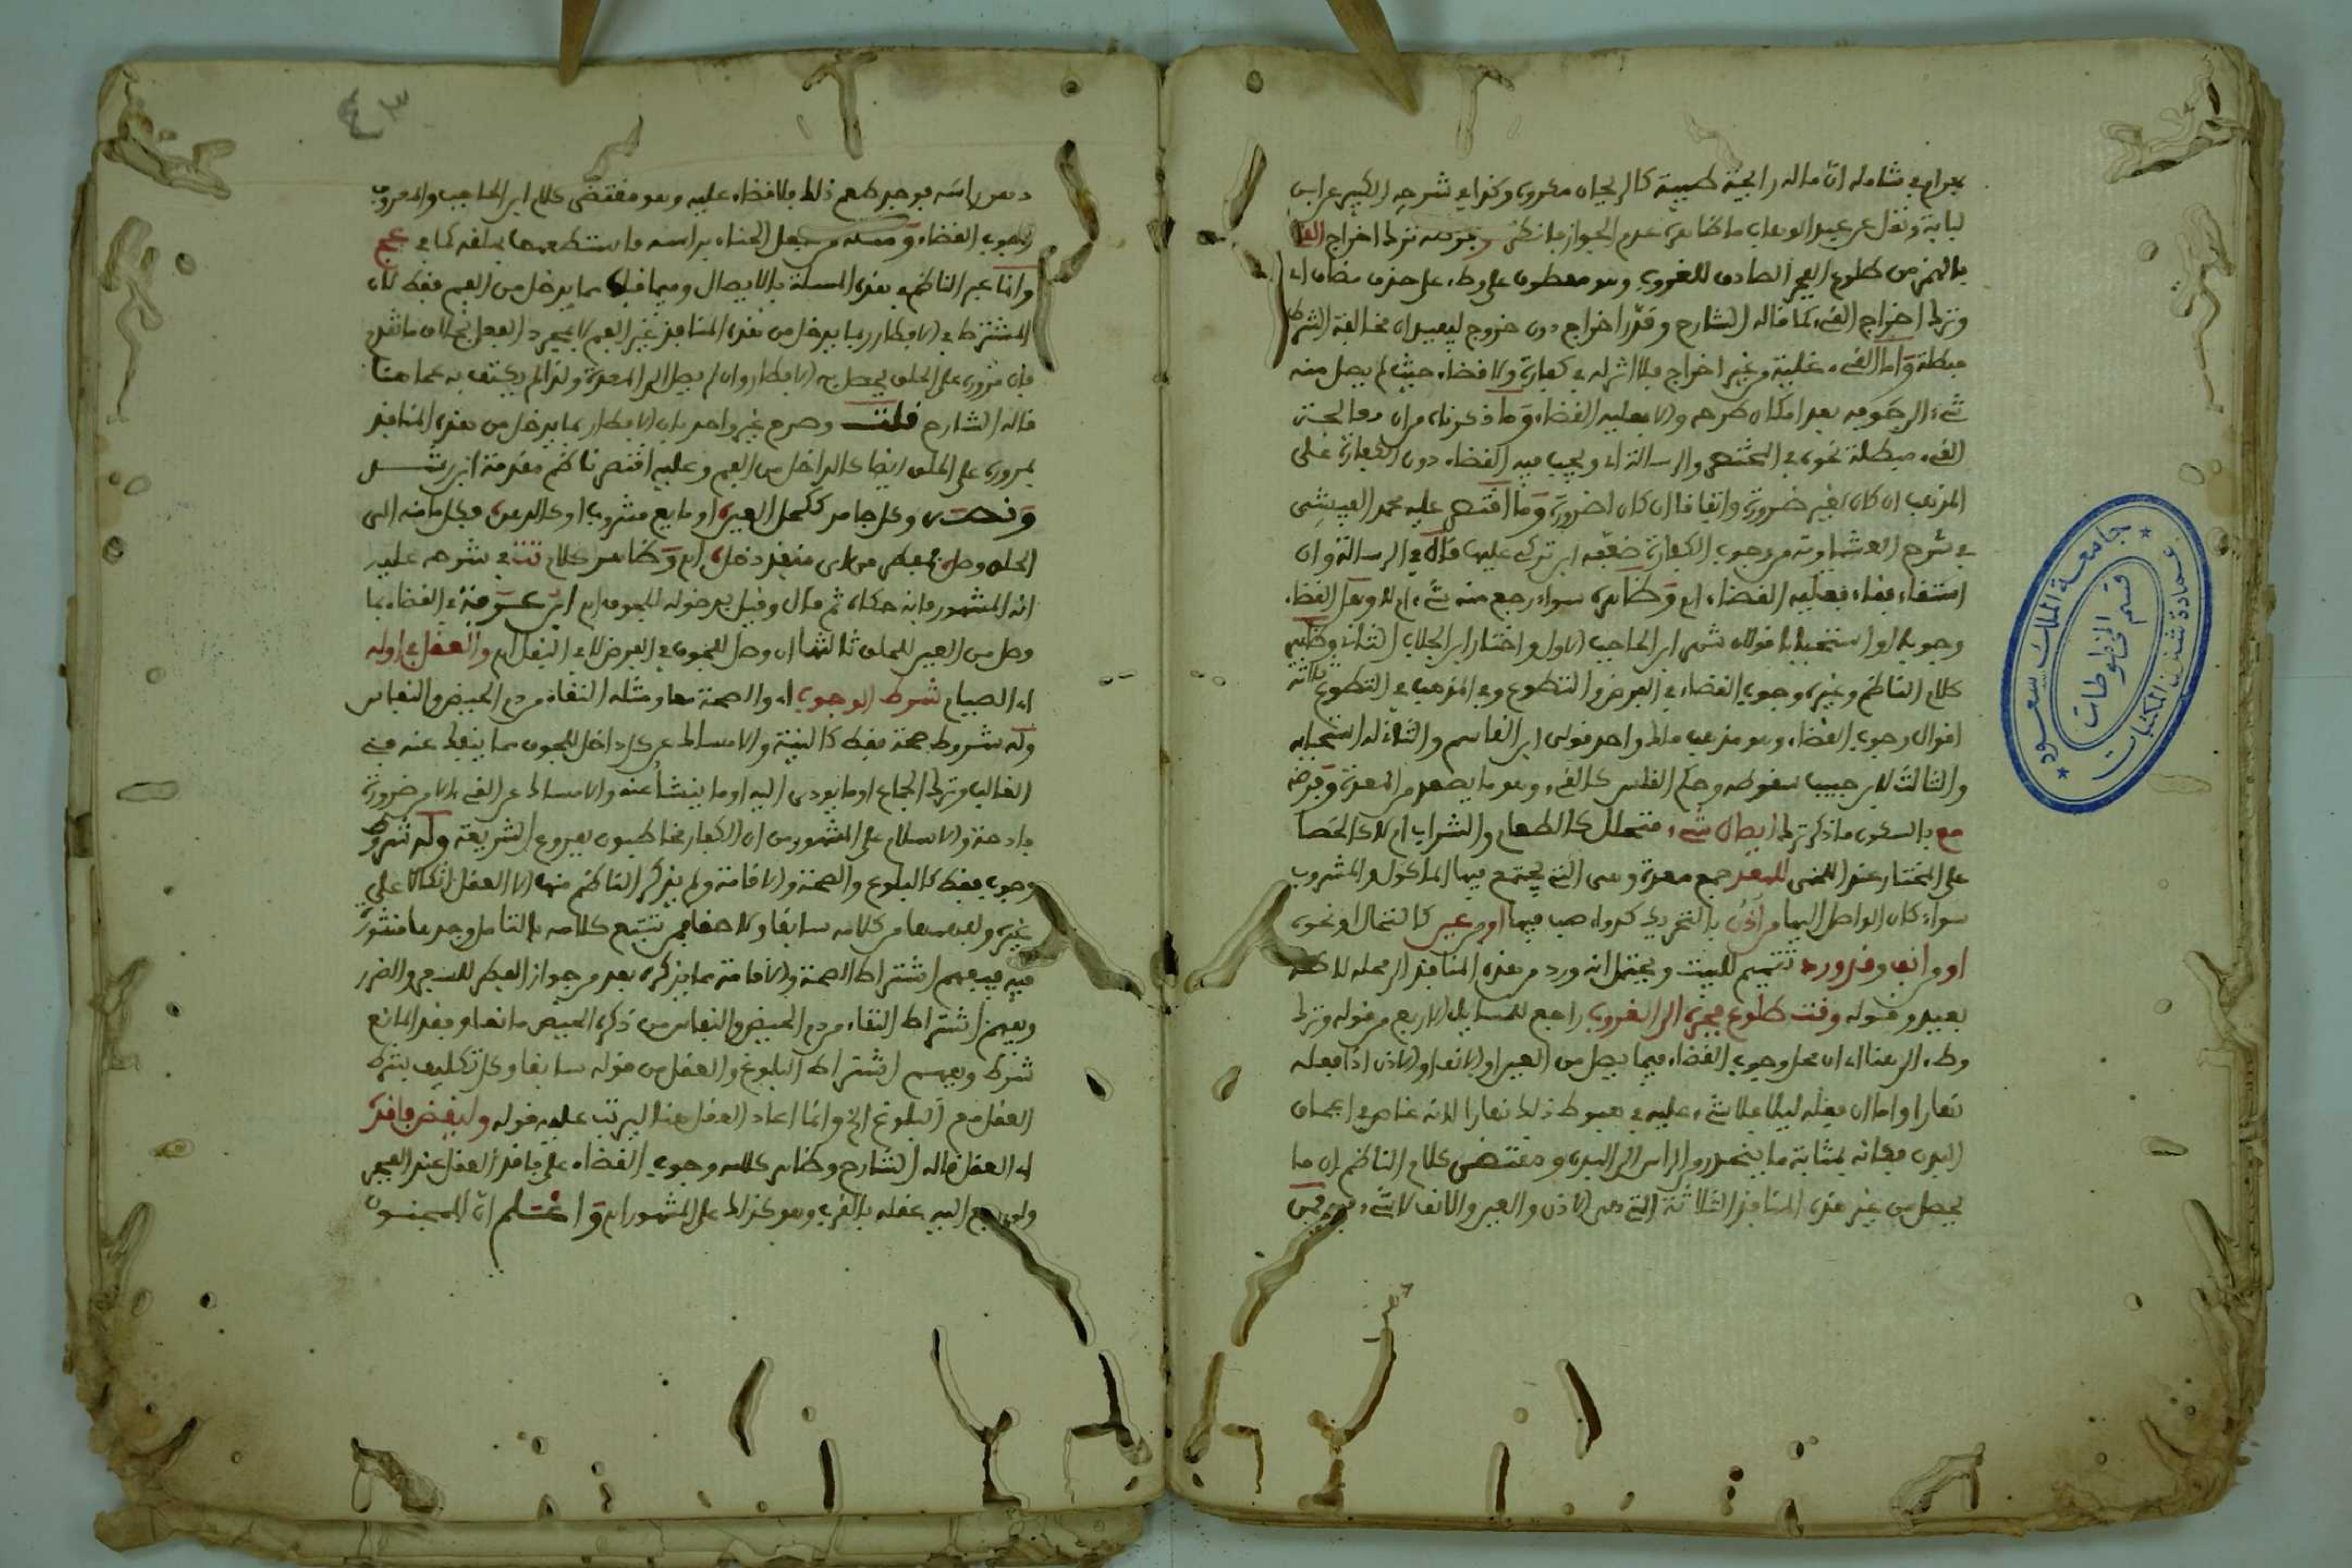 بهرام في شامله ان ماله رايحة طيبة كالريحان مكروه وكذا في شرحه الكبير عن ابن
لبابة ونقل عن عبد الوهاب ما ظاهره عدم الجواز فانظر وفرضه ترك اخراج القيء
بالهمز من طلوع الفجر الصادق للغروب وهو معطوف على وطء على حذف مضاف اي
وترك اخراج القيء كما قاله الشارح وقدر اخراج دون خروج ليفيد ان مخالفة الشرط
مبطلة واما القيء غلبة وغير اخراج فلا اثر له في كفارة ولا قضاء حيث لم يصل منه
شيء الى جوفه بعد امكان طرحه والا فعليه القضاء وما ذكرناه من ان معالجة
القيء مبطلة نحوه في المختصر والرسالة اي ويجب فيه القضاء دون الكفارة على
المذهب ان كان لغير ضرورة واتفاقا ان كان لضرورة وما اقتصر عليه محمد الفيشي
في شرح العشماوية من وجوب الكفارة ضعيف ابن تركي عليها قال في الرسالة وان
استقاء فقاء فعليه القضاء اه وظاهره سواء رجع منه شيء ام لا وهل القضاء
وجوبا او استحبابا قولان شهر ابن الحاجب الاول واختار ابن الجلاب الثاني وظاهر
كلام الناظم وغيره وجوب القضاء في الفرض والتطوع وفي المذهب في التطوع ثلاثة
اقوال وجوب القضاء وهو مذهب مالك واحد قولي ابن القاسم والثاني له استحبابه
والثالث لابن حبيب سقوطه وحكم القلس كالقيء وهو ما يصعد من المعدة وفرضه
مع بالسكون ما ذكر ترك ايصال شيء متحلل كالطعام والشراب ام لا كالحصا
على المختار عند اللخمي للمعد جمع معدة وهي التي يجتمع فيها الماكول والمشروب
سواء كان الواصل اليها من اذن بالتحريك كدواء صب فيها او من عين كاكتحال او نحوه
او من انف وقد ورد تتميم للبيت ويحتمل انه ورد من هذه المنافذ الى محله للاكل
بعيد وقوله وقت طلوع فجره الى الغروب راجع للمسايل الاربع من قوله وترك
وطء الى هنا اي ان محل وجوب القضاء فيما يصل من العين او الانف او الاذن اذا فعله
نهارا واما ان فعله ليلا فلا شيء عليه في هبوط ذلك نهارا لانه غاص في اعماق
البدن فكانه بمثابة ما ينحدر من الراس الى البدن ومقتضى كلام الناظم ان ما
يحصل من غير هذه المنافذ الثلاثة التي هي الاذن والعين والانف لا شيء فيه فمن
دهن راسه فوجد طعم ذلك فلا قضاء عليه وهو مقتضى كلام ابن الحاجب والمعروف
وجوب القضاء ومثله من جعل الحناء براسه فاستطعمها بحلقه كما في عج
وانما عبر الناظم في هذه المسئلة بالايصال وفيما قبله مما يدخل من الفم فقط لان
المشترط في الافطار بما يدخل من هذه المنافذ غير الفم لا بمجرد الفعل بخلاف ما تقدم
فان مروره على الحلق يحصل به الافطار وان لم يصل الى المعدة ولذا لم يكتف به عما هنا
قاله الشارح قلت وصرح غير واحد بان الافطار بما يدخل من هذه المنافذ
بمروره على الحلق ايضا كالداخل من الفم وعليه اقتصر ناظم مقدمة ابن رشد
ونصه وكل جامد ككحل العين او مايع مشروب او كالدهن فكل ما منه الى
الحلق وصل مفطر من اي منفذ دخل اه وظاهر كلام تت في شرحه عليه
انه المشهور فانه حكاه ثم قال وقيل بدخوله للجوف اه ابن عرفة في القضاء بما
وصل من العين للحلق ثالثها ان وصل للجوف في الفرض لا في النفل اه والعقل في اوله
اي الصيام شرط الوجوب اي والصحة معا ومثله النقاء من دم الحيض والنفاس
وله شروط صحة فقط كالنية والامساك عن كل داخل للجوف مما ينفك عنه في
الغالب وترك الجماع او ما يودي اليه او ما ينشا عنه والامساك عن القيء الا من ضرورة
فادحة والاسلام على المشهور من ان الكفار مخاطبون بفروع الشريعة وله شروط
وجوب فقط كالبلوغ والصحة والاقامة ولم يذكر الناظم منها الا العقل اتكالا على
غيره ولفهمها من كلامه سابقا ولاحقا فمن تتبع كلامه بالتامل وجدها منثورة
فيه فيفهم اشتراط الصحة والاقامة مما يذكره بعد من جواز الفطر للسفر والضرر
ويفهم اشتراط النقاء من دم الحيض والنفاس من ذكره الحيض مانعا وفقد المانع
شرط ويفهم اشتراط البلوغ والعقل من قوله سابقا وكل تكليف بشرط
العقل مع البلوغ الخ وانما اعاد العقل هنا ليرتب عليه قوله وليقض فاقده
اي العقل قاله الشارح وظاهر كلامه وجوب القضاء على فاقد العقل عند الفجر
ولو رجع اليه عقله بالقرب وهو كذلك على المشهور اه واعلم ان للمجنون
٤٣
جامعة الملك سعود
عمادة شئون المكتبات
قسم المخطوطات